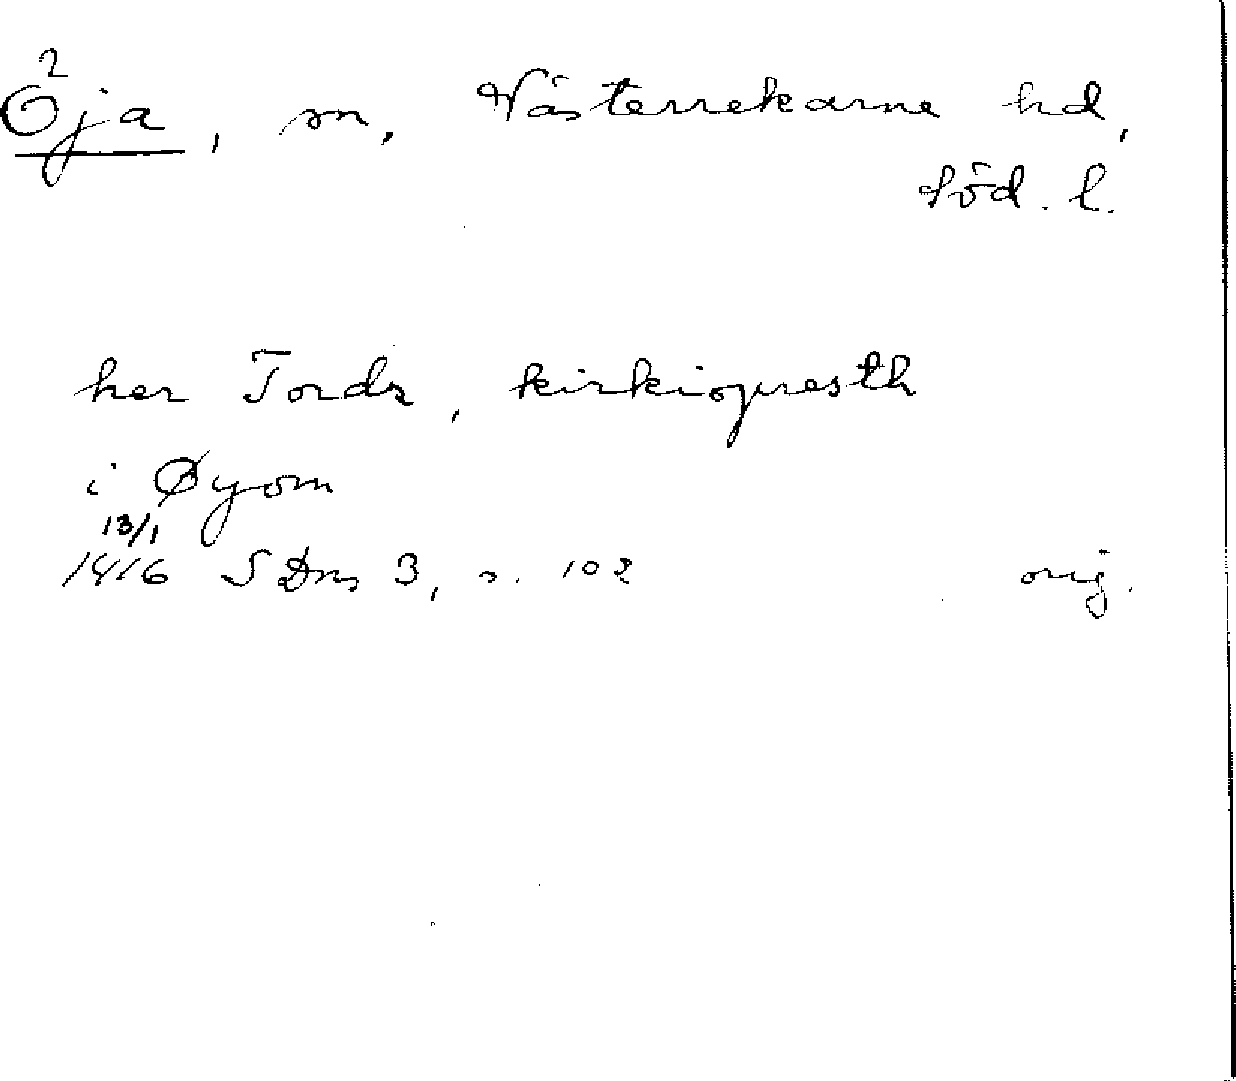 2
Öja, sn, Västerrekarne hd,
Söd. l.
her Tordr, kirkiopresth
i Øyom
13/1
1416 SDns 3, s. 102 orig.